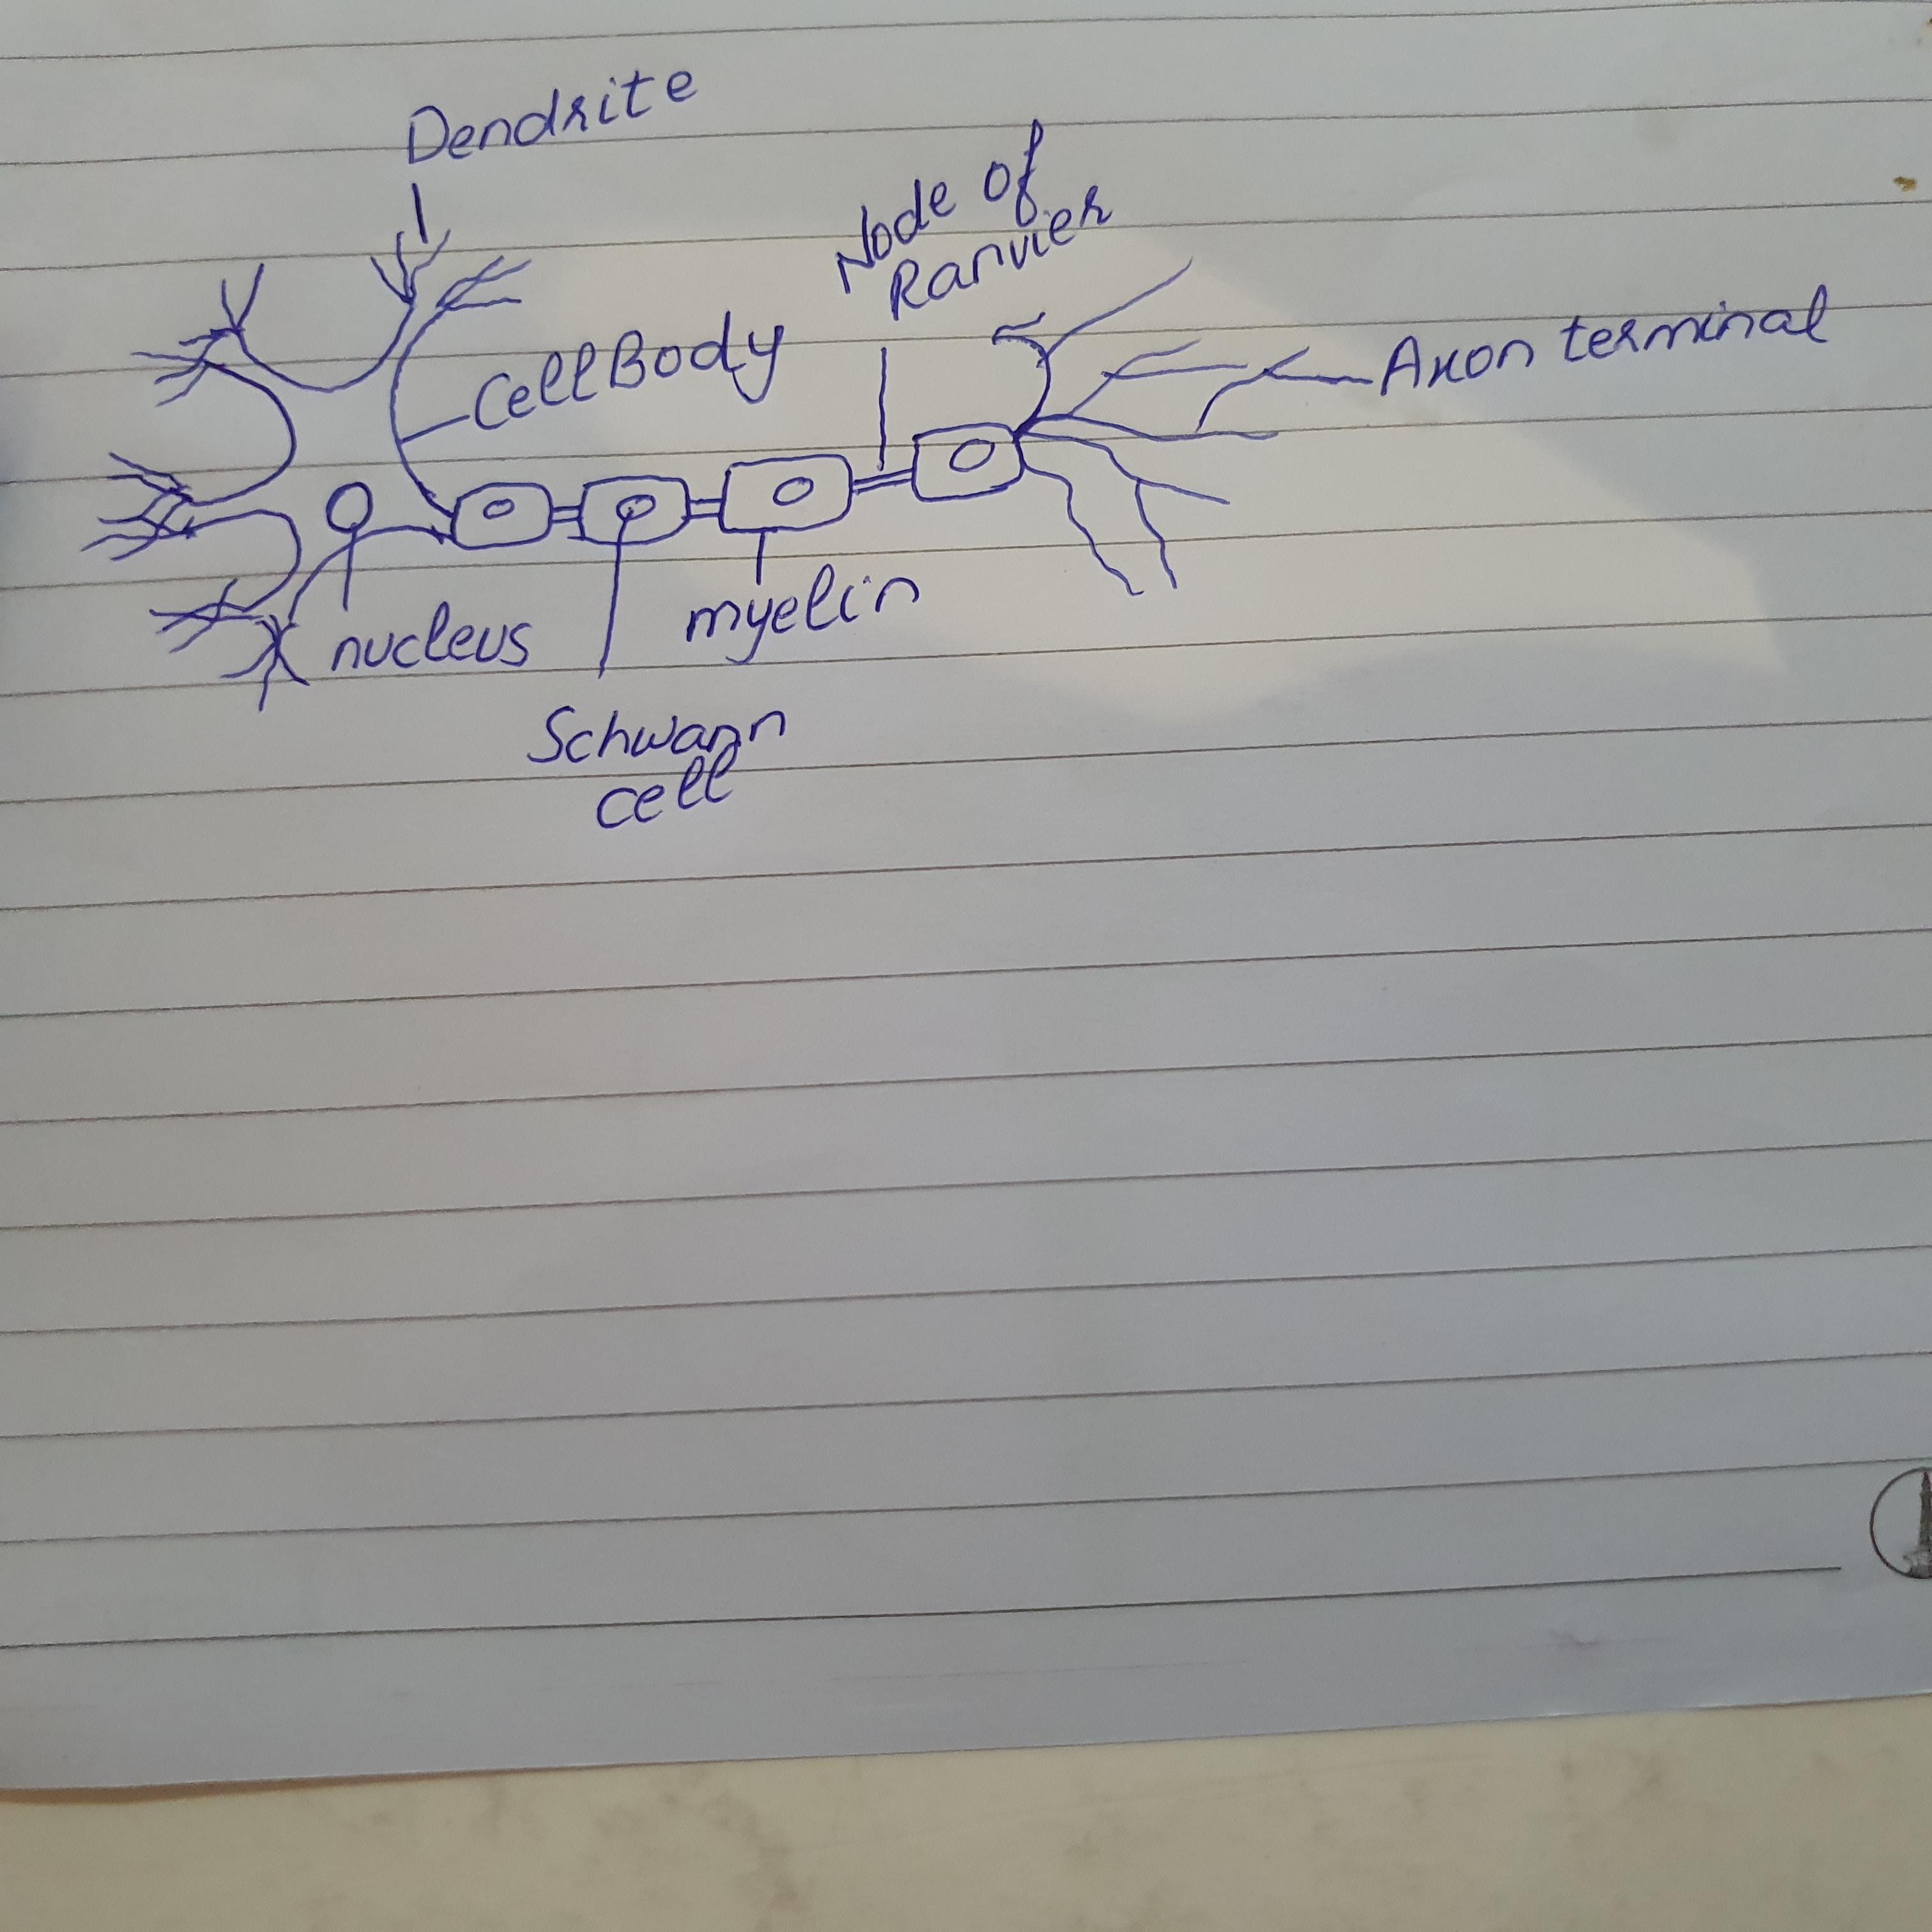 Dendrite
Node of
Ranvier
Cell Body
Axon terminal
nucleus
myelin
Schwann
cell